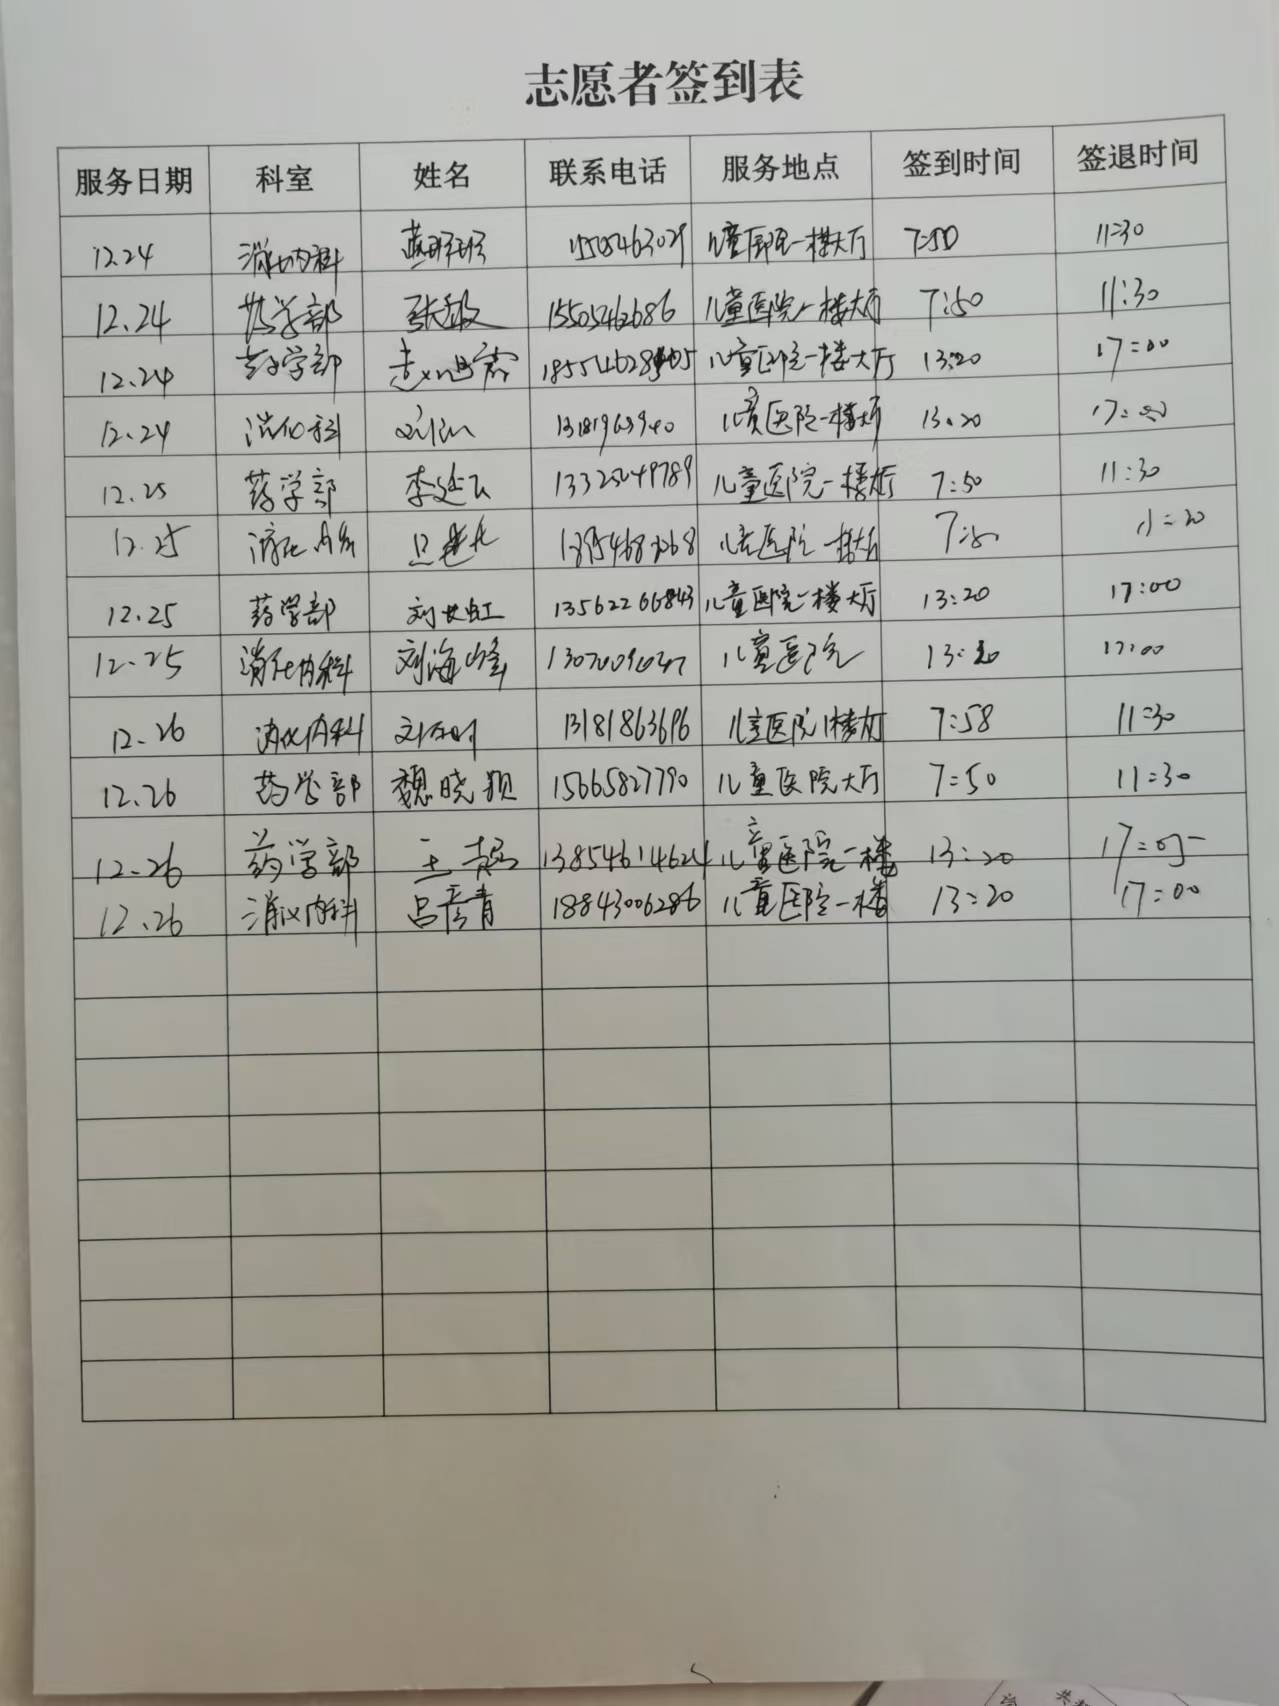 志愿者签到表
服务日期 科室 姓名 联系电话 服务地点 签到时间 签退时间
12.24 消化内科 儿童医院一楼大厅 7:50 11:30
12.24 药学部 张敏 15505462686 儿童医院一楼大厅 7:50 11:30
12.24 药学部 儿童医院一楼大厅 13:20 17:00
12.24 消化科 儿童医院一楼大厅 13:20 17:00
12.25 药学部 儿童医院一楼大厅 7:50 11:30
12.25 消化内科 儿童医院一楼大厅 7:50
12.25 药学部 刘长虹 13562266843 儿童医院一楼大厅 13:20 17:00
12.25 消化内科 刘海峰 儿童医院 13:20 17:00
12.26 消化内科 13181863696 儿童医院1楼大厅 7:58 11:30
12.26 药学部 魏晓颖 15665827790 儿童医院大厅 7:50 11:30
12.26 药学部 13854614624 儿童医院一楼 13:20 17:05
12.26 消化内科 吕彦青 18843006286 儿童医院一楼 13:20 17:00